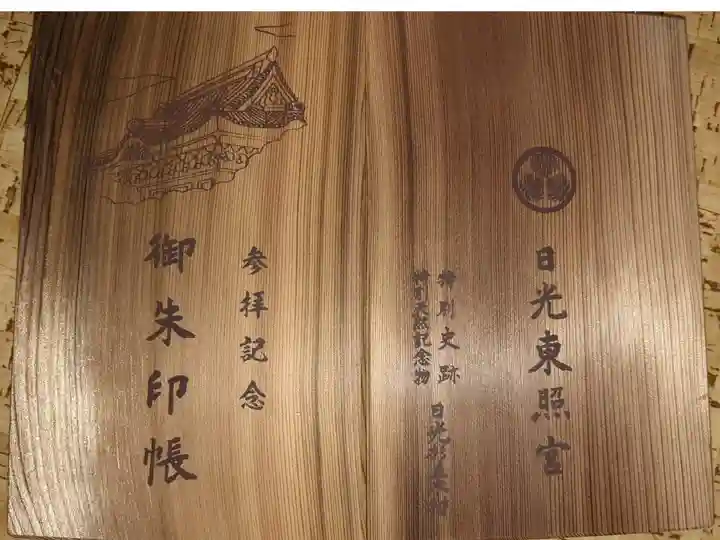 日光東照宮
特別史跡
特別天然記念物
日光杉並木
参拝記念
御朱印帳